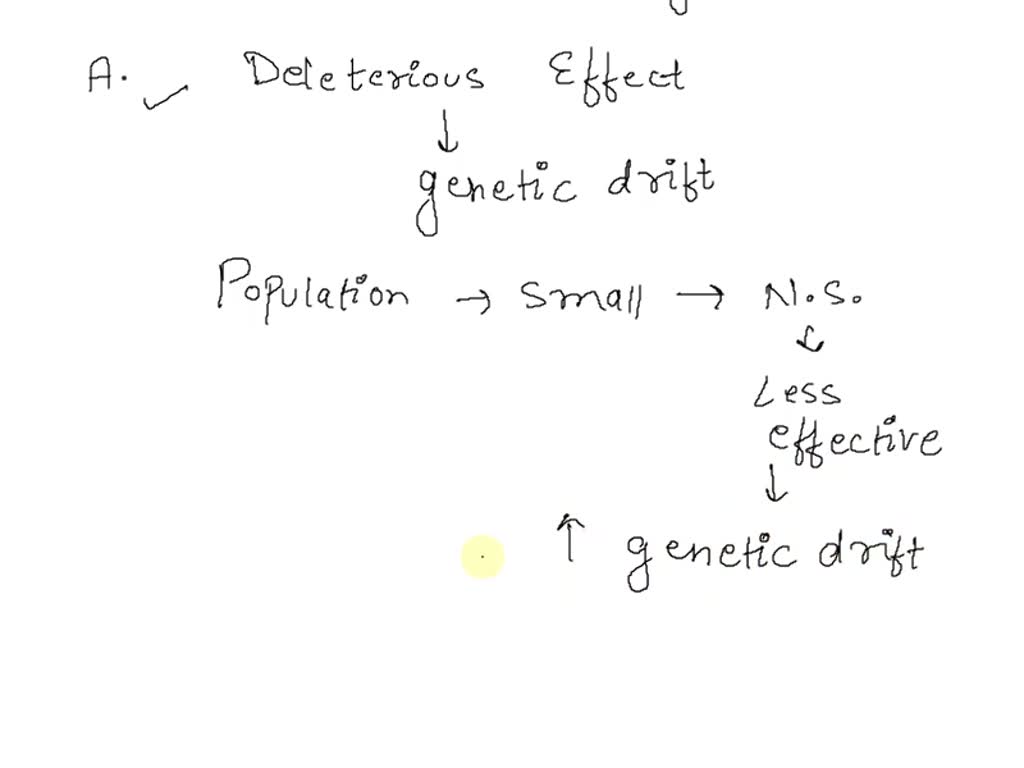 A. ✓ Deleterious Effect
↓
genetic drift
Population → small → N.S.
↓
Less
effective
↓
↑ genetic drift